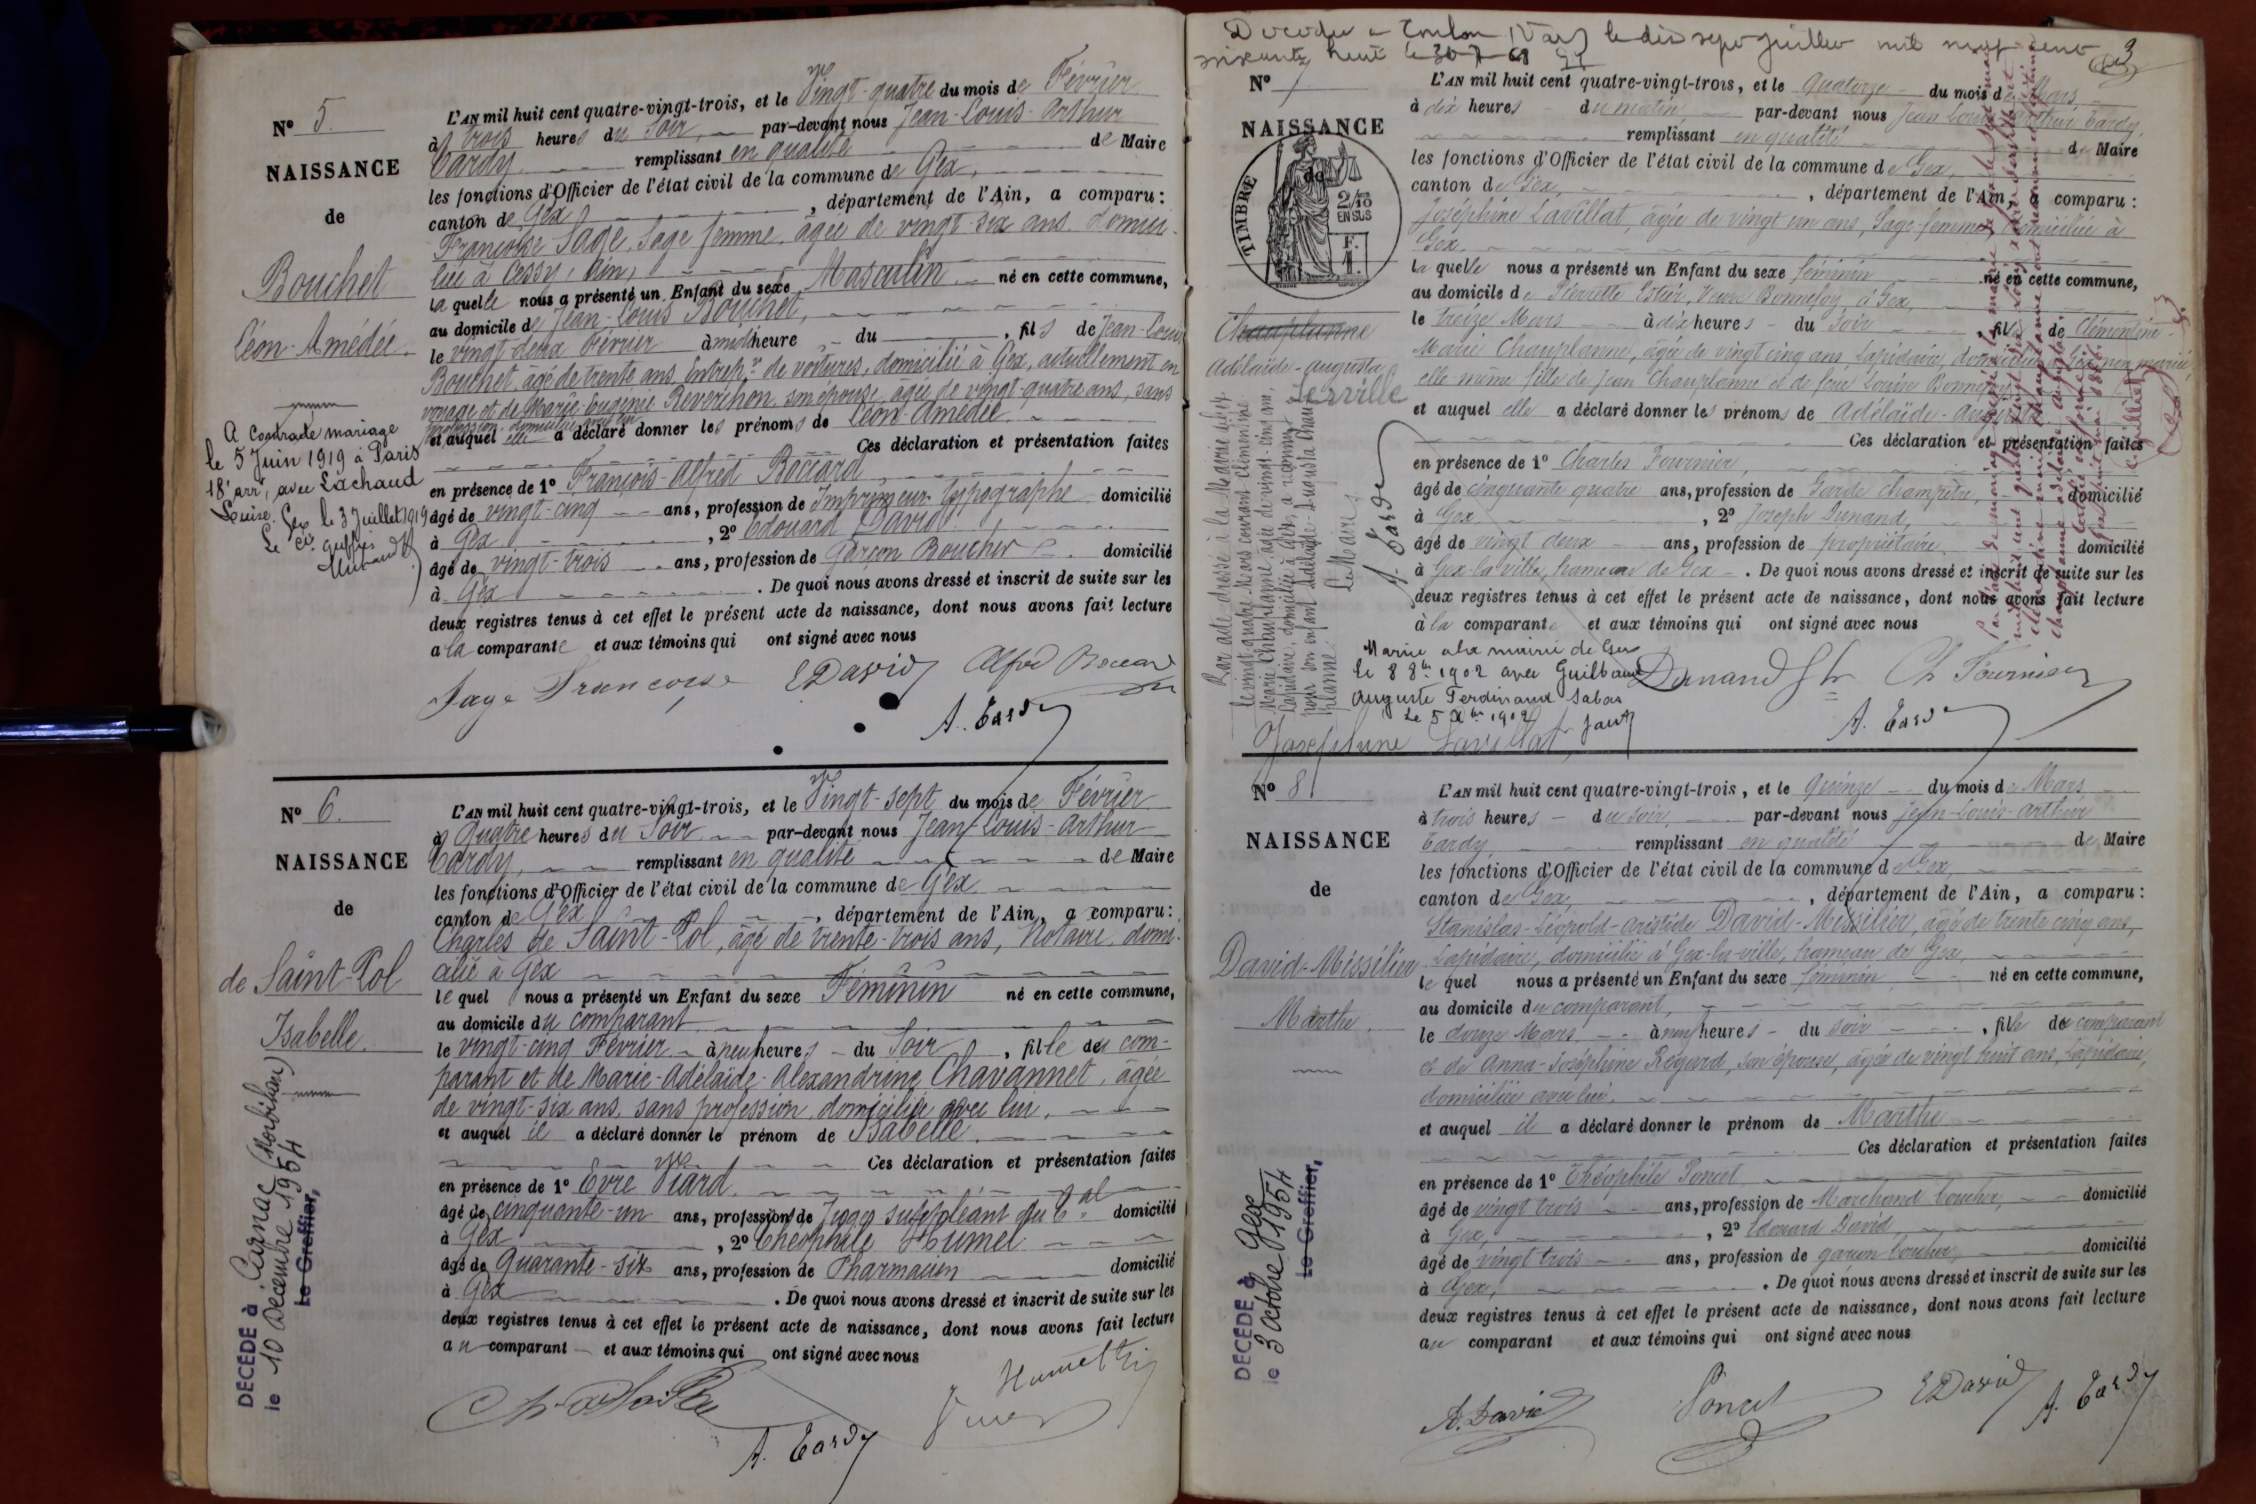 Nº 5.
NAISSANCE
de
Bouchet
Léon-Amédée.
A Contracté mariage
le 5 Juin 1919 à Paris
18e arrt, avec Lachaud
Louise. Gex le 3 Juillet 1919
Le Cis greffier
L'AN mil huit cent quatre-vingt-trois, et le Vingt-quatre du mois de Février
à trois heures du Soir, par-devant nous Jean-Louis-Arthur
Tardy, remplissant en qualité de Maire
les fonctions d'Officier de l'état civil de la commune de Gex,
canton de Gex, département de l'Ain, a comparu :
Françoise Sage, Sage femme, âgée de vingt-six ans, domici-
liée à Cessy, Ain,
la quelle nous a présenté un Enfant du sexe Masculin né en cette commune,
au domicile de Jean-Louis Bouchet,
le vingt-deux Février à midi heure du , fils de Jean-Louis
Bouchet, âgé de trente ans, Entrepr. de voitures, domicilié à Gex, actuellement en
voyage et de Marie Eugénie Reverchon, son épouse, âgée de vingt-quatre ans, sans
profession, domiciliée avec lui
et auquel elle a déclaré donner les prénoms de Léon-Amédée.
Ces déclaration et présentation faites
en présence de 1º François-Alfred Boccard,
âgé de vingt-cinq ans, profession de Imprimeur-typographe domicilié
à Gex, 2º Edouard David
âgé de vingt-trois ans, profession de garçon Boucher domicilié
à Gex. De quoi nous avons dressé et inscrit de suite sur les
deux registres tenus à cet effet le présent acte de naissance, dont nous avons fait lecture
a la comparante et aux témoins qui ont signé avec nous
Sage Françoise E David Alfred Boccard
A. Tardy
Nº 6.
NAISSANCE
de
de Saint-Pol
Isabelle.
DÉCÉDÉ à Carnac (Morbihan)
le 10 Décembre 1954
Le Greffier,
L'AN mil huit cent quatre-vingt-trois, et le Vingt-sept du mois de Février
à Quatre heures du Soir par-devant nous Jean-Louis-Arthur
Tardy, remplissant en qualité de Maire
les fonctions d'Officier de l'état civil de la commune de Gex
canton de Gex, département de l'Ain, a comparu :
Charles de Saint-Pol, âgé de trente-trois ans, Notaire, domi-
cilié à Gex
le quel nous a présenté un Enfant du sexe Féminin né en cette commune,
au domicile du comparant
le vingt-cinq Février à neuf heures du Soir, fille du com-
parant et de Marie-Adélaïde-Alexandrine Chavannet, âgée
de vingt-six ans, sans profession, domiciliée avec lui.
et auquel il a déclaré donner le prénom de Isabelle.
Ces déclaration et présentation faites
en présence de 1º Evre Viard.
âgé de cinquante-un ans, profession de Juge suppléant du Tal domicilié
à Gex, 2º Théophile Humel
âgé de Quarante-six ans, profession de Pharmacien domicilié
à Gex. De quoi nous avons dressé et inscrit de suite sur les
deux registres tenus à cet effet le présent acte de naissance, dont nous avons fait lecture
au comparant et aux témoins qui ont signé avec nous
A. Tardy
Décédée à Toulon (Var) le dix sept juillet mil neuf cent
soixante huit le 30-7-68
3
Nº 7
NAISSANCE
de
TIMBRE
2/10
EN SUS
F.
1
Chauplanne
Adélaïde-Augusta
Lerville
Par acte dressé à la Mairie de Gex
le vingt quatre Mars courant Clémentine
Marie Chauplanne, âgée de vingt-cinq ans,
Lapidaire, domiciliée à Gex, a reconnu
pour son enfant Adélaïde-Augusta Chau-
planne.
Le Maire,
A. Tardy
L'AN mil huit cent quatre-vingt-trois, et le Quatorze du mois de Mars,
à dix heures du matin par-devant nous Jean Louis Arthur Tardy,
remplissant en qualité de Maire
les fonctions d'Officier de l'état civil de la commune de Gex,
canton de Gex, département de l'Ain, a comparu :
Joséphine Lavillat, âgée de vingt un ans, Sage-femme, domiciliée à
Gex
la quelle nous a présenté un Enfant du sexe féminin né en cette commune,
au domicile de Pierrette Estier, Veuve Bonnefoy, à Gex,
le treize Mars à dix heures du soir, fille de Clémentine-
Marie Chauplanne, âgée de vingt cinq ans, Lapidaire, domiciliée à Gex, non mariée,
elle même fille de Jean Chauplanne et de feue Louise Bonnefoy
et auquel elle a déclaré donner les prénoms de Adélaïde-Augusta
Ces déclaration et présentation faites
en présence de 1º Charles Fournier,
âgé de cinquante quatre ans, profession de Garde champêtre, domicilié
à Gex, 2º Joseph Dunand,
âgé de vingt deux ans, profession de propriétaire domicilié
à Gex-la-ville, hameau de Gex. De quoi nous avons dressé et inscrit de suite sur les
deux registres tenus à cet effet le présent acte de naissance, dont nous avons fait lecture
à la comparante et aux témoins qui ont signé avec nous
Mariée à la mairie de Gex
le 8 8bre 1902 avec Guilbaud
Auguste Ferdinand Sabas
Le 5 Xbre 1902
Dunand Ch Fournier
Joséphine Lavillat
A. Tardy
Nº 8
NAISSANCE
de
David-Missilier
Marthe.
DÉCÉDÉ à Gex
le 3 octobre 1954
Le Greffier,
L'AN mil huit cent quatre-vingt-trois, et le Quinze du mois de Mars
à trois heures du soir, par-devant nous Jean-Louis-Arthur
Tardy, remplissant en qualité de Maire
les fonctions d'Officier de l'état civil de la commune de Gex,
canton de Gex, département de l'Ain, a comparu :
Stanislas-Léopold-Aristide David-Missilier, âgé de trente cinq ans,
Lapidaire, domicilié à Gex-la-ville, hameau de Gex,
le quel nous a présenté un Enfant du sexe féminin né en cette commune,
au domicile du comparant,
le douze Mars à neuf heures du soir, fille du comparant
et de Anna-Joséphine Régard, son épouse, âgée de vingt huit ans, Lapidaire,
domiciliée avec lui.
et auquel il a déclaré donner le prénom de Marthe
Ces déclaration et présentation faites
en présence de 1º Théophile Poncet
âgé de vingt trois ans, profession de Marchand boucher, domicilié
à Gex, 2º Edouard David
âgé de vingt trois ans, profession de garçon boucher, domicilié
à Gex. De quoi nous avons dressé et inscrit de suite sur les
deux registres tenus à cet effet le présent acte de naissance, dont nous avons fait lecture
au comparant et aux témoins qui ont signé avec nous
A. David Poncet E David A. Tardy